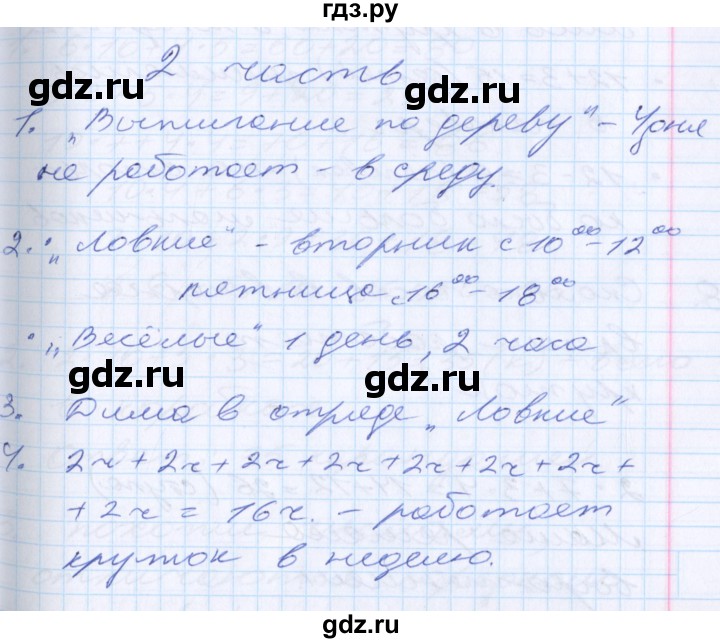 гдз.ру
2 часть
gdz.ru gdz.ru
1. „Выжигание по дереву" –
не работает – в среду.
2. · „Ловкие" – вторник с 10⁰⁰ – 12⁰⁰
пятница с 16⁰⁰ – 18⁰⁰
· „Весёлые" 1 день, 2 часа
gdz.ru gdz.ru
3. Дима в отряде „Ловкие"
4. 2ч + 2ч + 2ч + 2ч + 2ч + 2ч + 2ч +
+ 2ч = 16ч. – работает
кружок в неделю.
gdz.ru gdz.ru
гдз.ру